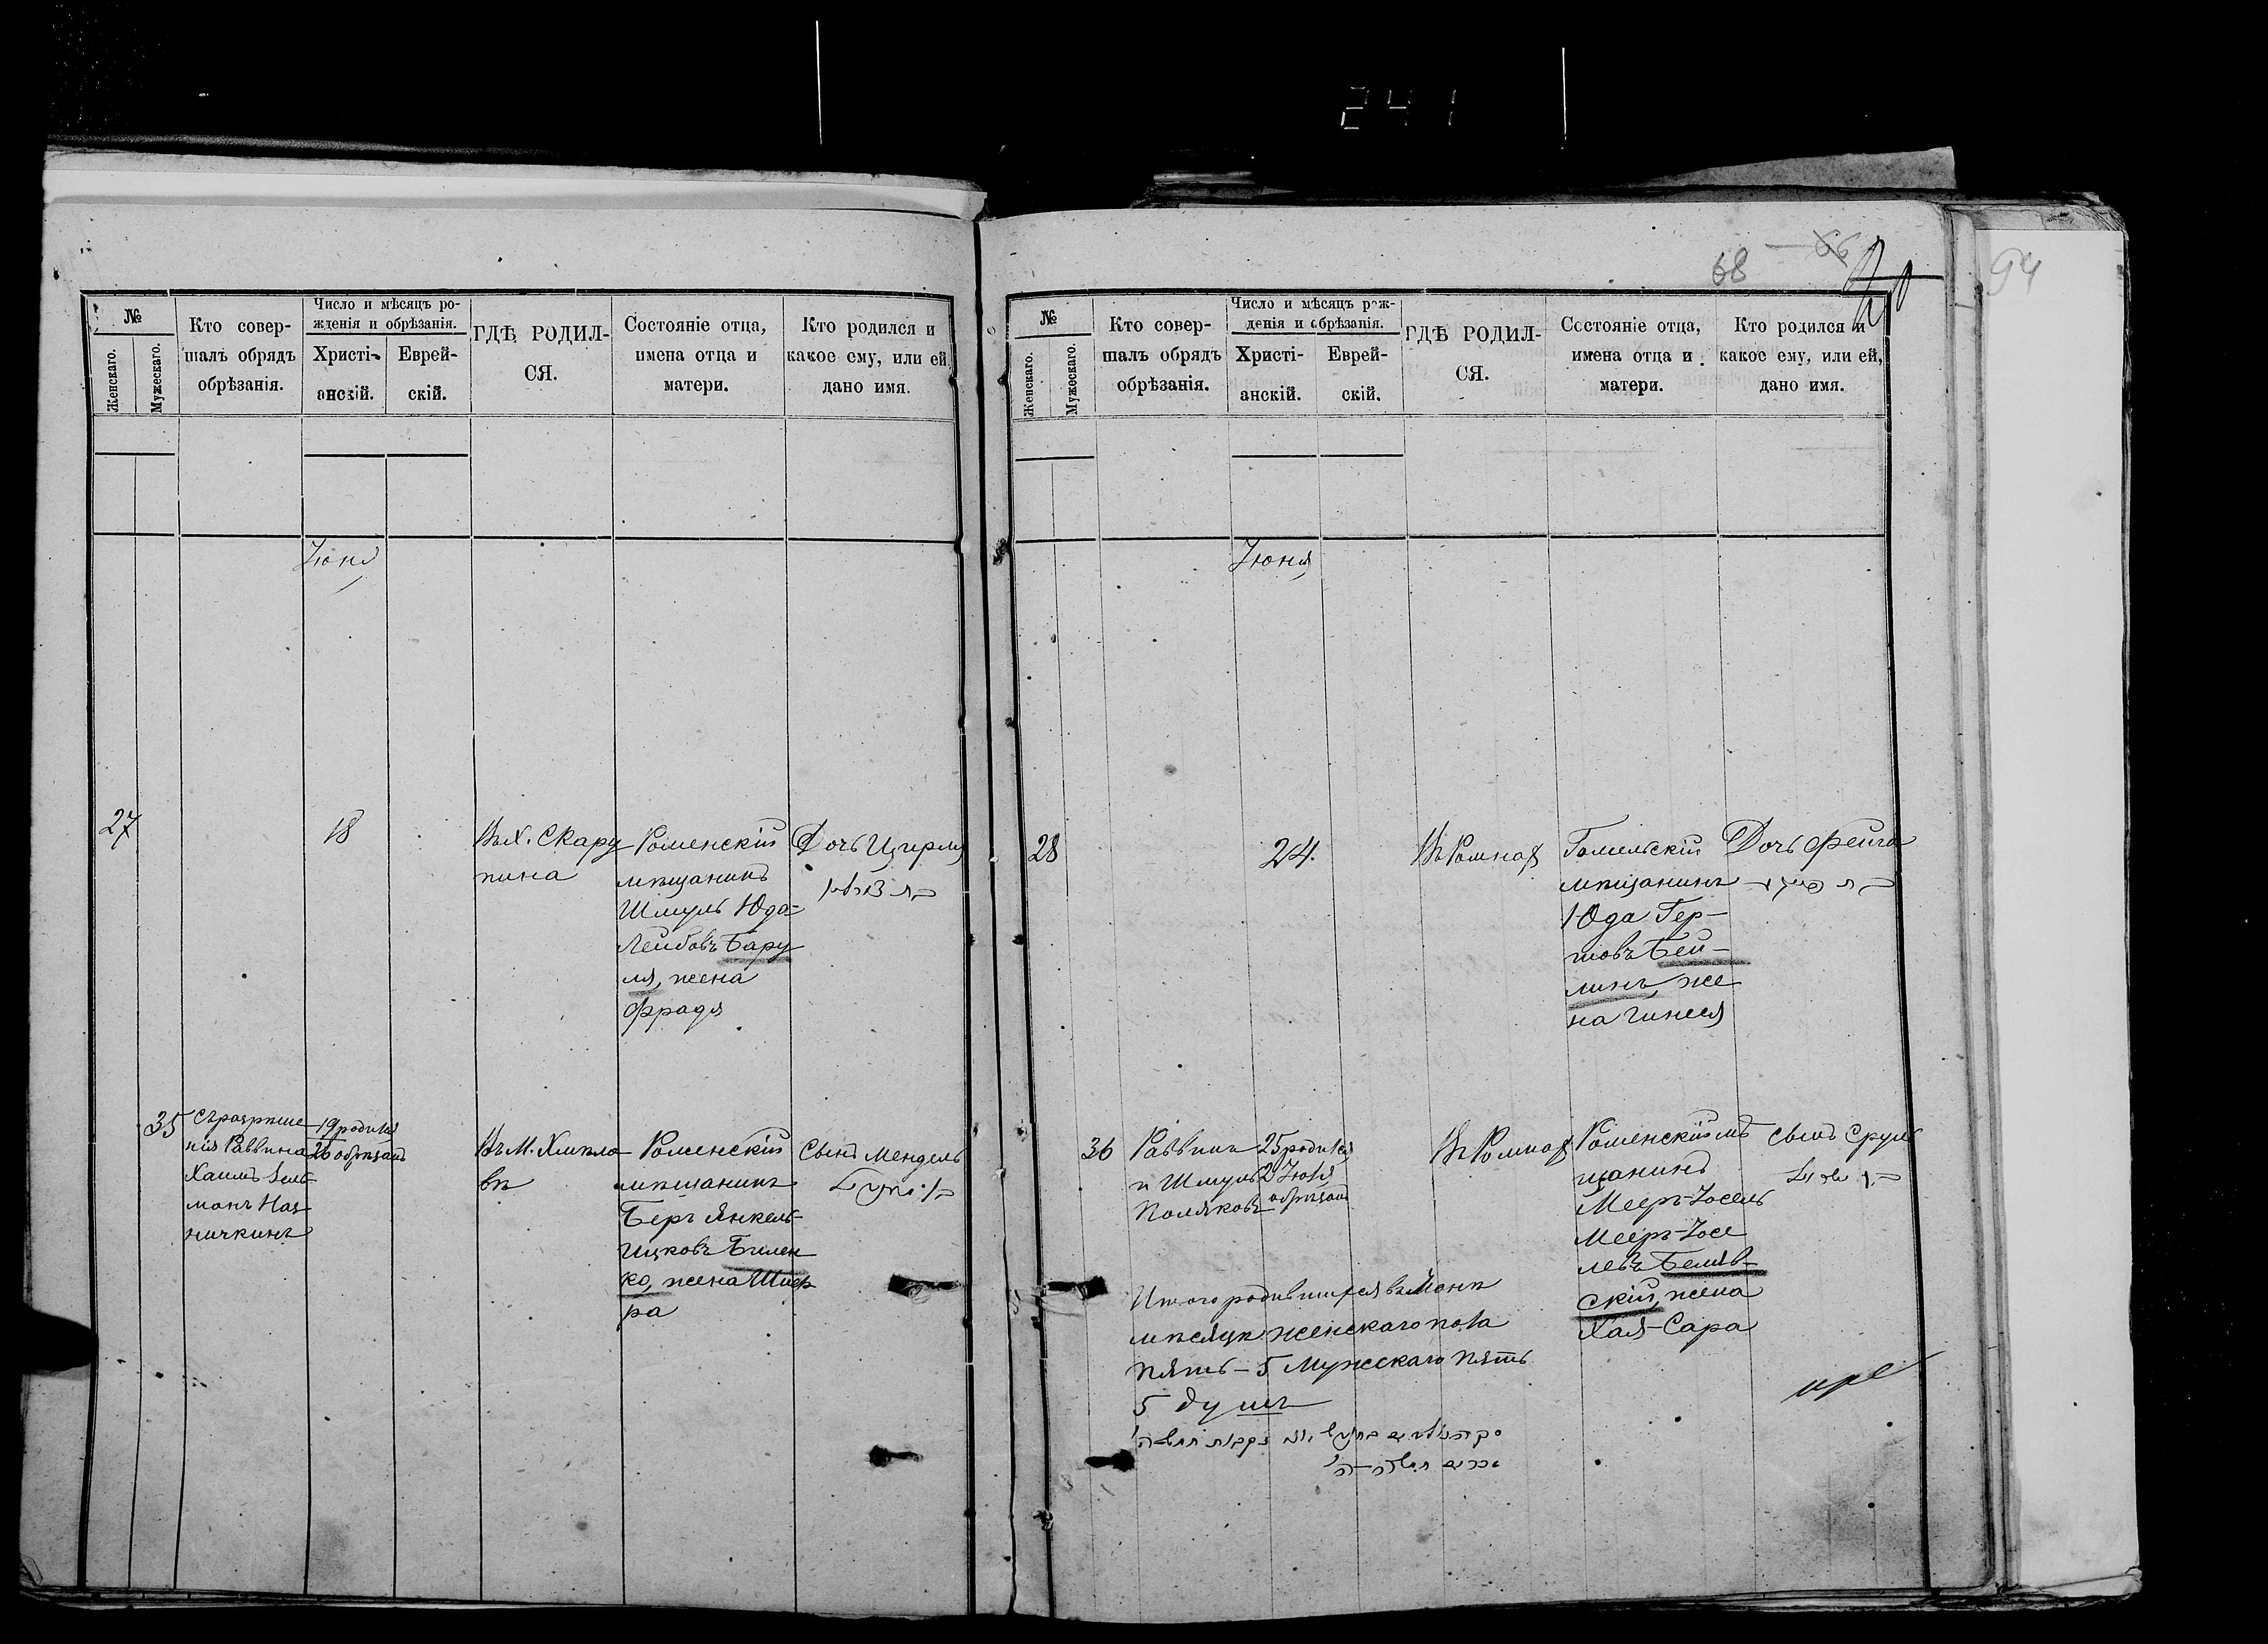 241
№
Женскаго.
Мужескаго.
Кто совер-
шалъ обрядъ
обрѣзанія.
Число и мѣсяцъ ро-
жденія и обрѣзанія.
Христі-
анскій.
Еврей-
скій.
ГДѢ РОДИЛ-
СЯ.
Состояніе отца,
имена отца и
матери.
Кто родился и
какое ему, или ей
дано имя.
Іюня
27
18
Въ Х. Скару
пина
Роменскій
мѣщанинъ
Шмуль Юда-
Лейбовъ Бару
ля, жена
Фрадя
Дочь Цирля
35
Съ разрѣше
нія Раввина
Хаимъ Зель
манъ
19 родился
26 обрѣзанъ
Въ М. Хмѣло
вѣ
Роменскій
мѣщанинъ
Беръ Янкель-
Ицковъ Билен
ко, жена
Сынъ Мендель
68 66
94
№
Женскаго.
Мужескаго.
Кто совер-
шалъ обрядъ
обрѣзанія.
Число и мѣсяцъ рож-
денія и обрѣзанія.
Христі-
анскій.
Еврей-
скій.
ГДѢ РОДИЛ-
СЯ.
Состояніе отца,
имена отца и
матери.
Кто родился и
какое ему, или ей,
дано имя.
Іюня
28
24.
Въ Ромнах
Гомельскій
мѣщанинъ
Юда Гер-
шовъ Бей-
линъ, же
на
Дочь Фейга
36
Раввинъ
и Шмуль
Поляковъ
25 родился
2 Іюля
обрѣзанъ
Въ Ромнах
Роменскій мѣ
щанинъ
Мееръ-Іосель
Мееръ-Іосе
левъ Беляв-
скій, жена
Хая-Сара
Сынъ Сруль
Итого родившихся въ Іюнѣ
мѣсяцѣ женскаго пола
пять - 5 Мужескаго пять
5 душъ